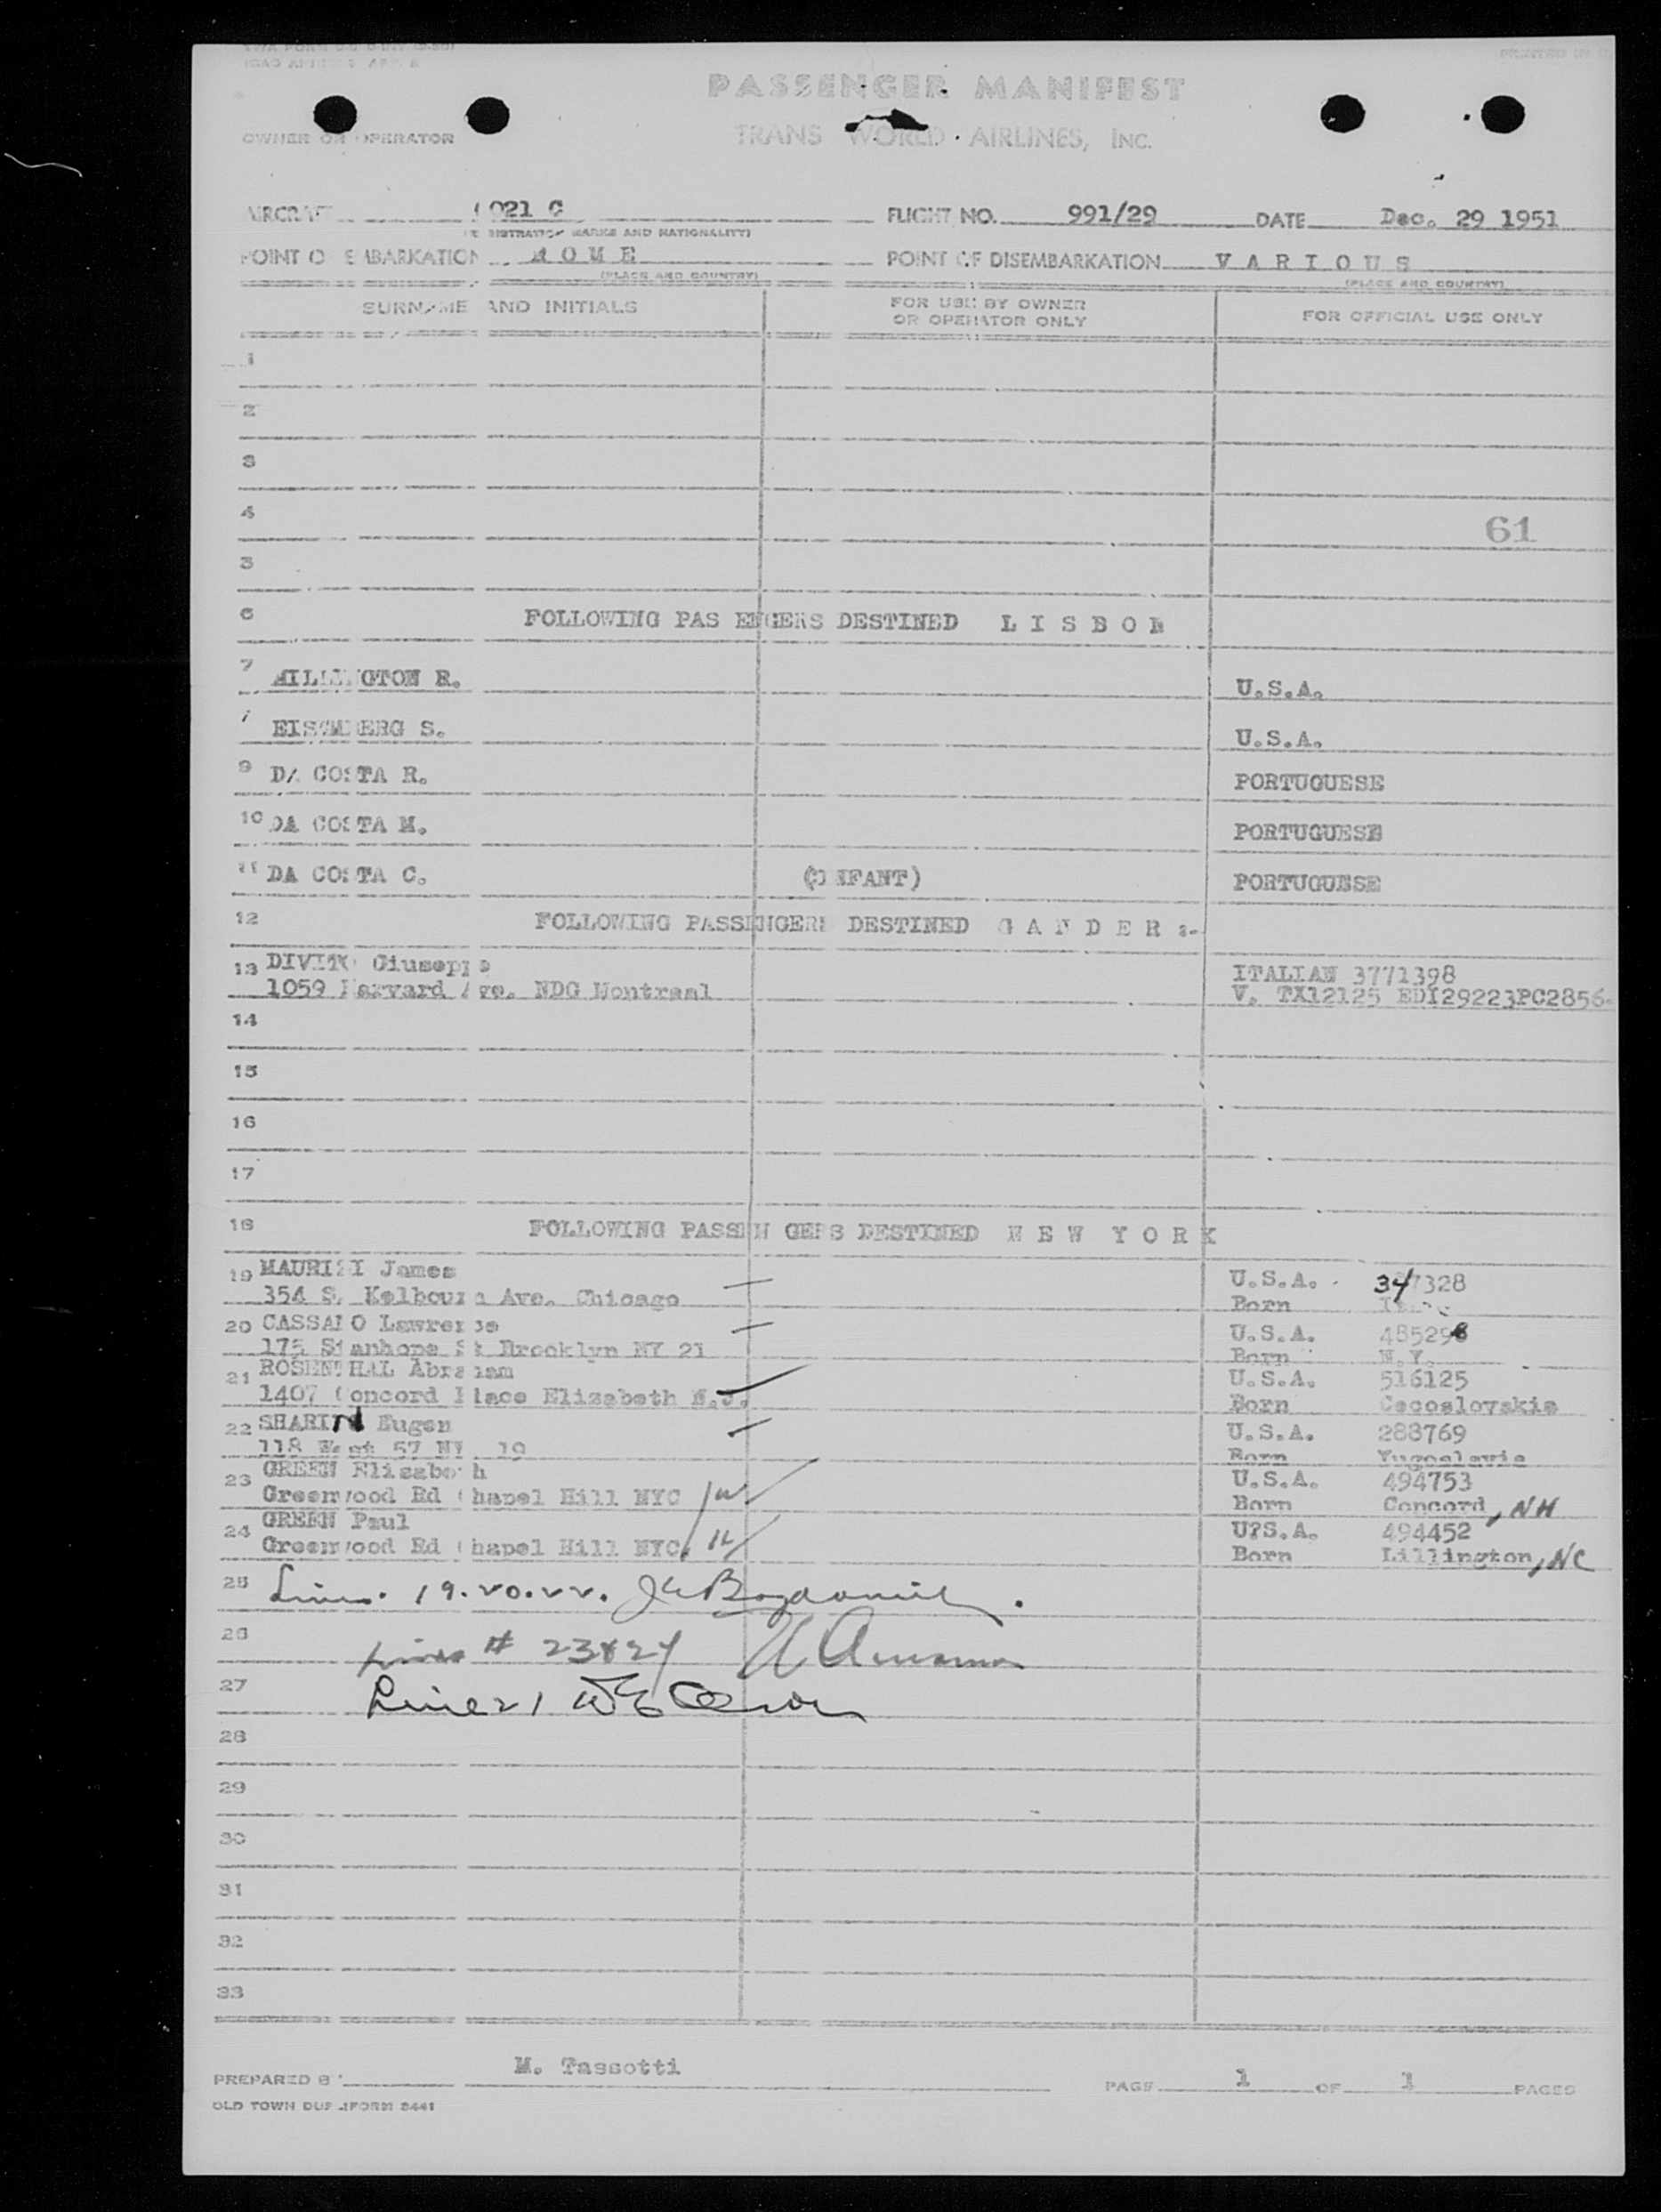 PASSENGER MANIFEST
OWNER OR OPERATOR TRANS WORLD AIRLINES, INC.
AIRCRAFT 021 C FLIGHT NO. 991/29 DATE Dec. 29 1951
MARKS AND NATIONALITY)
POINT OF EMBARKATION ROME POINT OF DISEMBARKATION V A R I O U S
(PLACE AND COUNTRY) (PLACE AND COUNTRY)
SURNAME AND INITIALS FOR USE BY OWNER OR OPERATOR ONLY FOR OFFICIAL USE ONLY
1
2
3
4
61
5
6 FOLLOWING PASSENGERS DESTINED L I S B O N
7 R. U.S.A.
S. U.S.A.
9 DA COSTA R. PORTUGUESE
10 DA COSTA M. PORTUGUESE
11 DA COSTA C. (INFANT) PORTUGUESE
12 FOLLOWING PASSENGERS DESTINED G A N D E R :-
13 DIVITO Giuseppe ITALIAN 3771398
1059 Harvard Ave. NDG Montreal V. TX12125 EDI29223PC2856
14
15
16
17
18 FOLLOWING PASSEN GERS DESTINED N E W Y O R K
19 James U.S.A. 347328
354 S. Ave. Chicago Born
20 Lawrence U.S.A. 485298
175 Stanhope St Brooklyn NY 21 Born N.Y.
21 ROSENTHAL Abraham U.S.A. 516125
1407 Concord Place Elizabeth N.J. Born Cecoslovakia
22 Eugen U.S.A. 288769
118 West 57 NY 19 Born Yugoslavia
23 GREEN Elisabeth U.S.A. 494753
Greenwood Rd Chapel Hill NYC Born Concord, NH
24 GREEN Paul U?S.A. 494452
Greenwood Rd Chapel Hill NYC Born Lillington, NC
25 19.20.22.
26 # 23
27 Line 21
28
29
30
31
32
33
PREPARED BY M. Tassotti PAGE 1 OF 1 PAGES
OLD TOWN FORM 8441